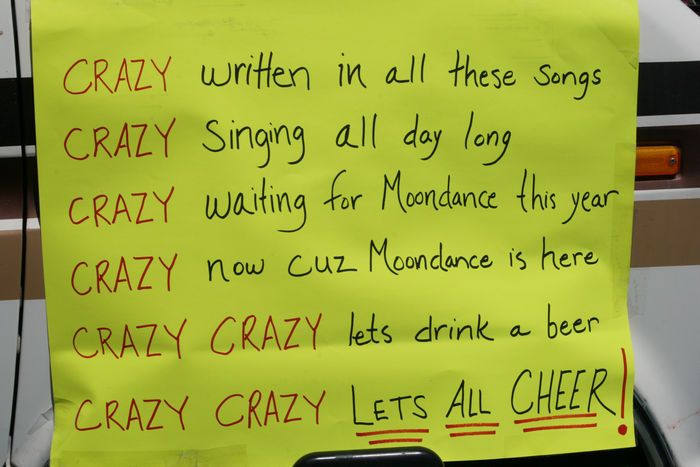 CRAZY written in all these songs
CRAZY Singing all day long
CRAZY waiting for Moondance this year
CRAZY now cuz Moondance is here
CRAZY CRAZY lets drink a beer
CRAZY CRAZY LETS ALL CHEER!